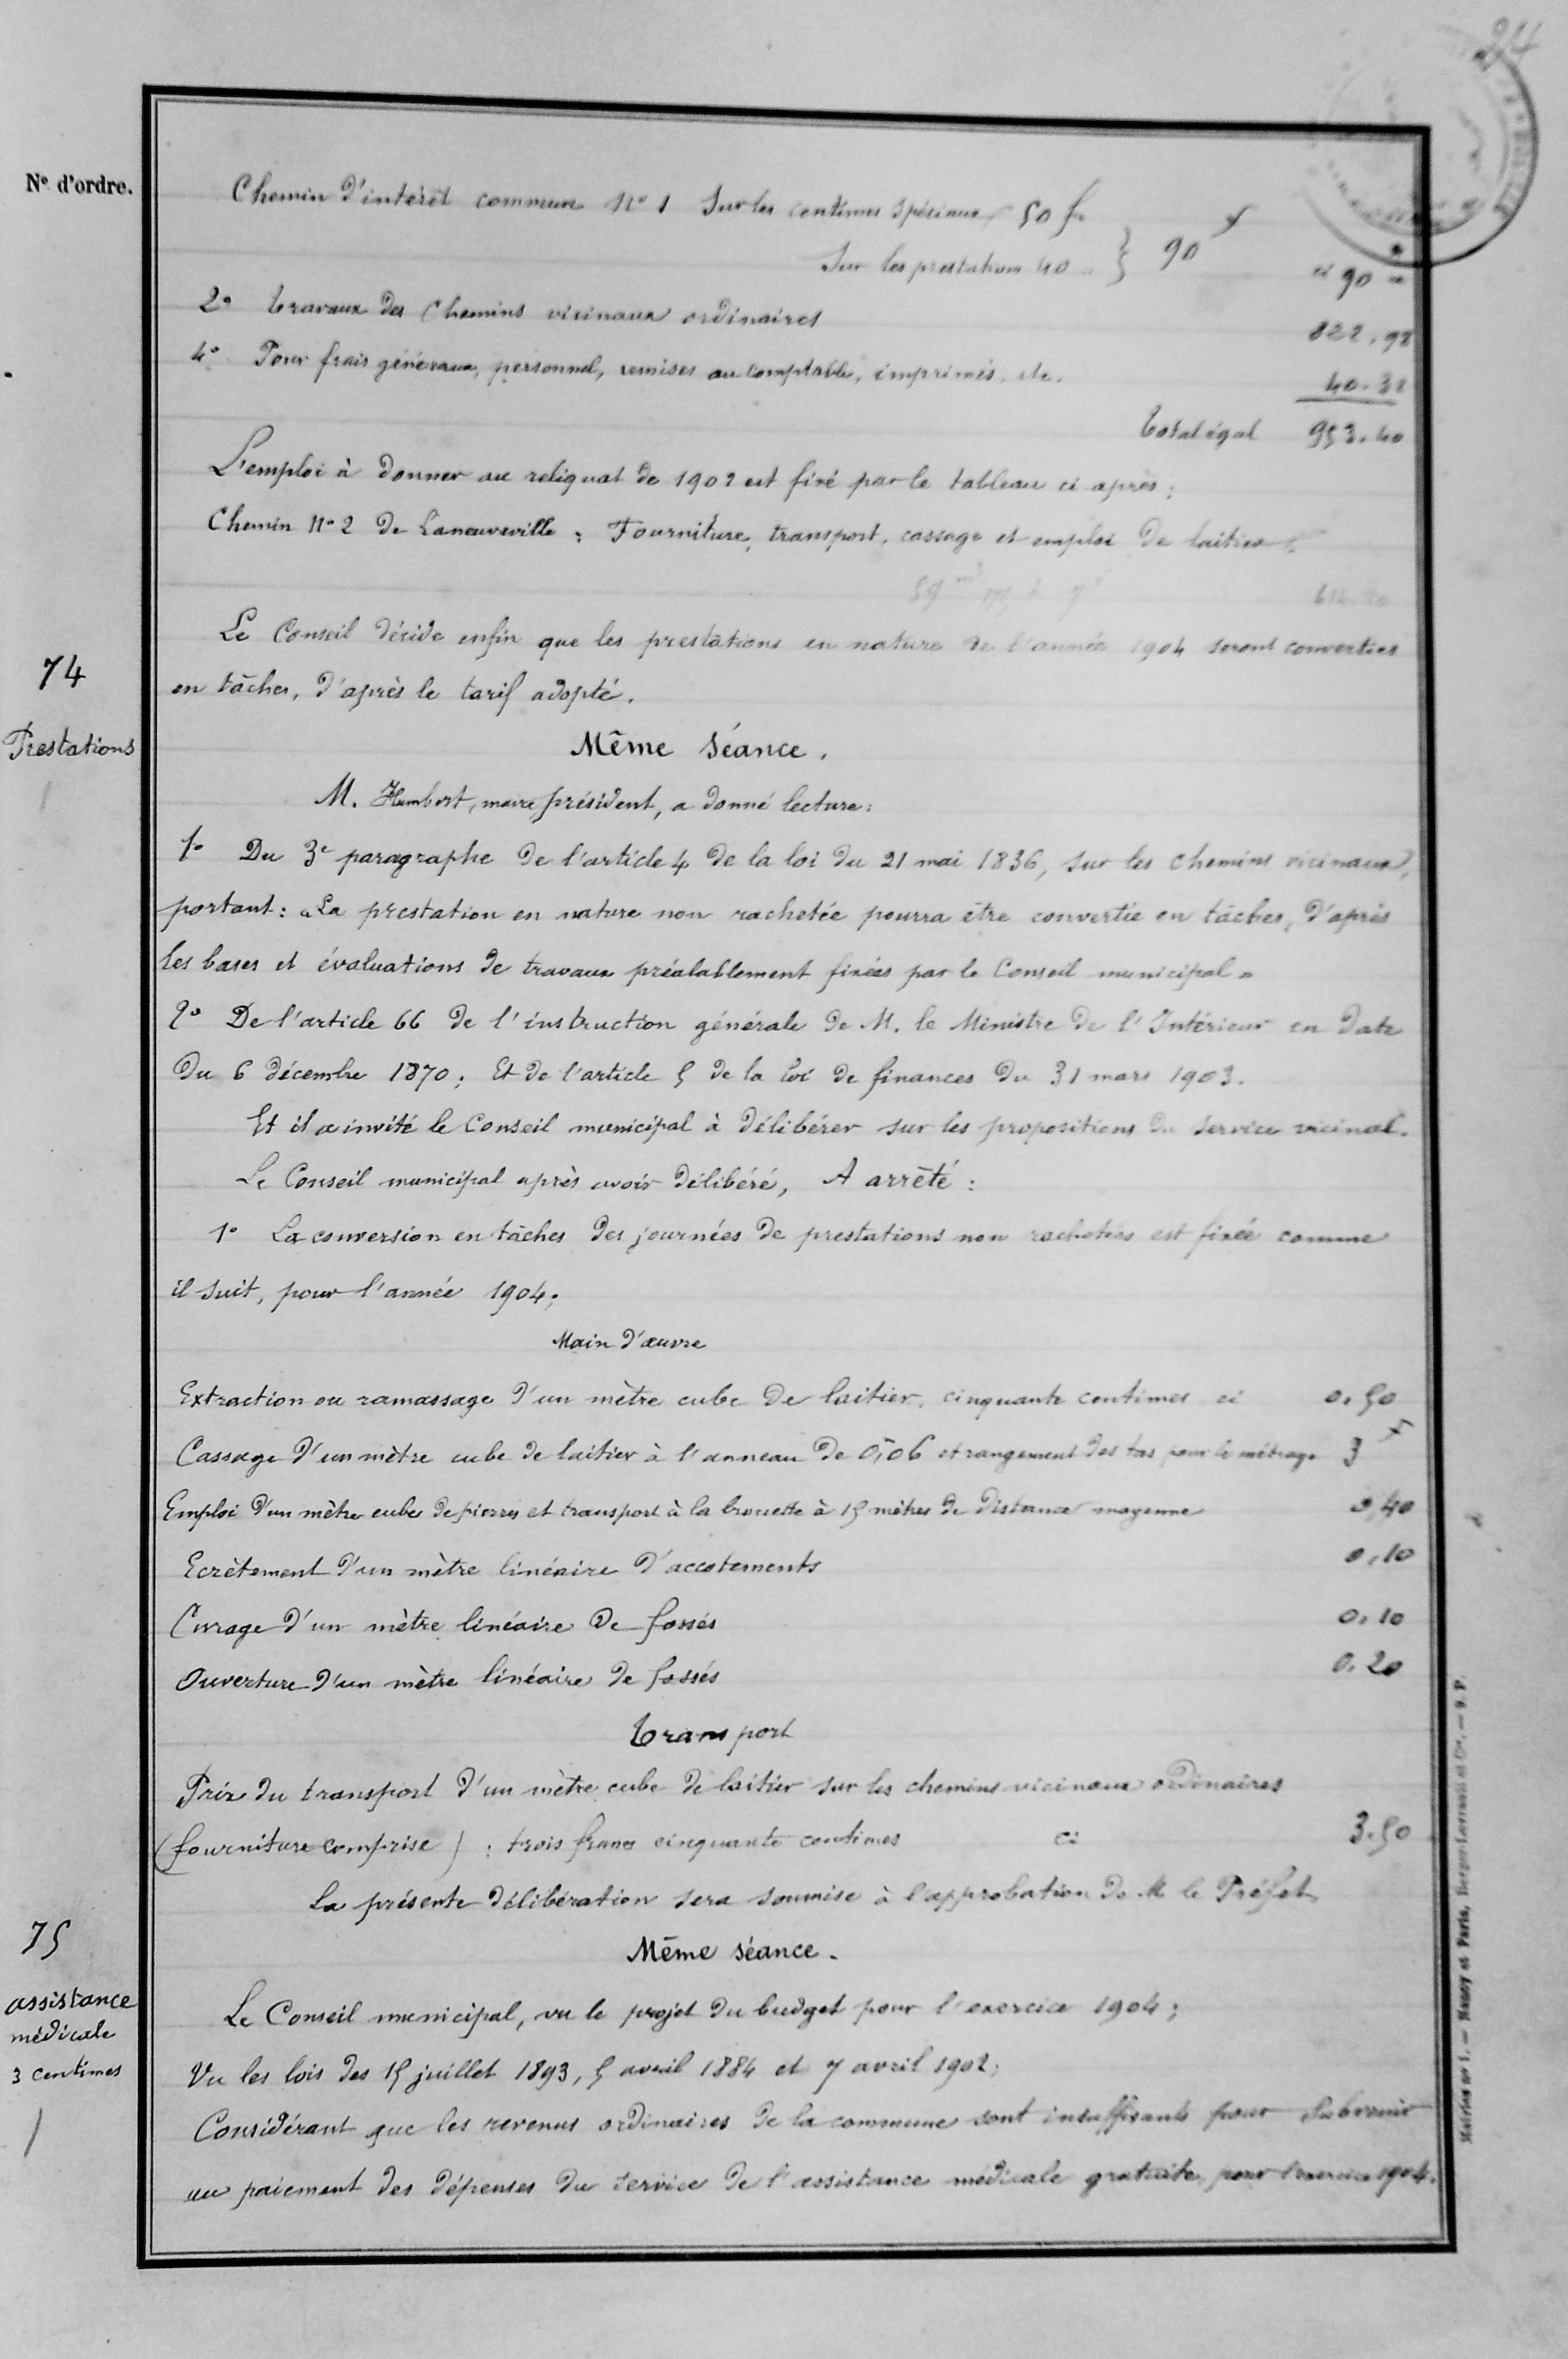 24
N° d'ordre.
Chemin d'intérêt commun N° 1 Sur les centimes spéciaux 50 f
Sur les prestations 40 } 90 f ci 90
2° Travaux des Chemins vicinaux ordinaires 822.98
4° Pour frais généraux, personnel, remises au comptable, imprimés, etc. 40.38
Total égal 953.40
L'emploi à donner au reliquat de 1902 est fixé par le tableau ci après :
Chemin N° 2 de Laneuveville : Fourniture, transport, cassage et emploi de laitier
59 m3
Le Conseil décide enfin que les prestations en nature de l'année 1904 seront converties
en tâches, d'après le tarif adopté.
74
Prestations
Même Séance.
M. Humbert, maire président, a donné lecture :
1° Du 3e paragraphe de l'article 4 de la loi du 21 mai 1836, sur les chemins vicinaux,
portant : « La prestation en nature non rachetée pourra être convertie en tâches, d'après
les bases et évaluations de travaux préalablement fixées par le Conseil municipal »
2° De l'article 66 de l'instruction générale de M. le Ministre de l'Intérieur en date
du 6 décembre 1870 ; Et de l'article 5 de la loi de finances du 31 mars 1903.
Et il a invité le Conseil municipal à délibérer sur les propositions du service vicinal.
Le Conseil municipal après avoir délibéré, A arrêté :
1° La conversion en tâches des journées de prestations non rachetées est fixée comme
il suit, pour l'année 1904 ;
Main d'œuvre
Extraction ou ramassage d'un mètre cube de laitier, cinquante centimes ci 0.50
Cassage d'un mètre cube de laitier à l'anneau de 0,06 et rangement des tas pour le métrage 3 f
Emploi d'un mètre cube de pierres et transport à la brouette à 15 mètres de distance moyenne 0,40
Ecrêtement d'un mètre linéaire d'accotements 0,10
Curage d'un mètre linéaire de fossés 0.10
Ouverture d'un mètre linéaire de fossés 0.20
Transport
Prix du transport d'un mètre cube de laitier sur les chemins vicinaux ordinaires
(fourniture comprise) : trois francs cinquante centimes ci 3.50
La présente délibération sera soumise à l'approbation de M le Préfet
75
assistance
médicale
3 centimes
Même séance.
Le Conseil municipal, vu le projet du budget pour l'exercice 1904 ;
Vu les lois des 15 juillet 1893, 5 avril 1884 et 7 avril 1902 ;
Considérant que les revenus ordinaires de la commune sont insuffisants pour subvenir
au paiement des dépenses du service de l'assistance médicale gratuite pour l'exercice 1904.
Mairies n° 1. — Nancy et Paris, Berger-Levrault et Cie. — 9. P.